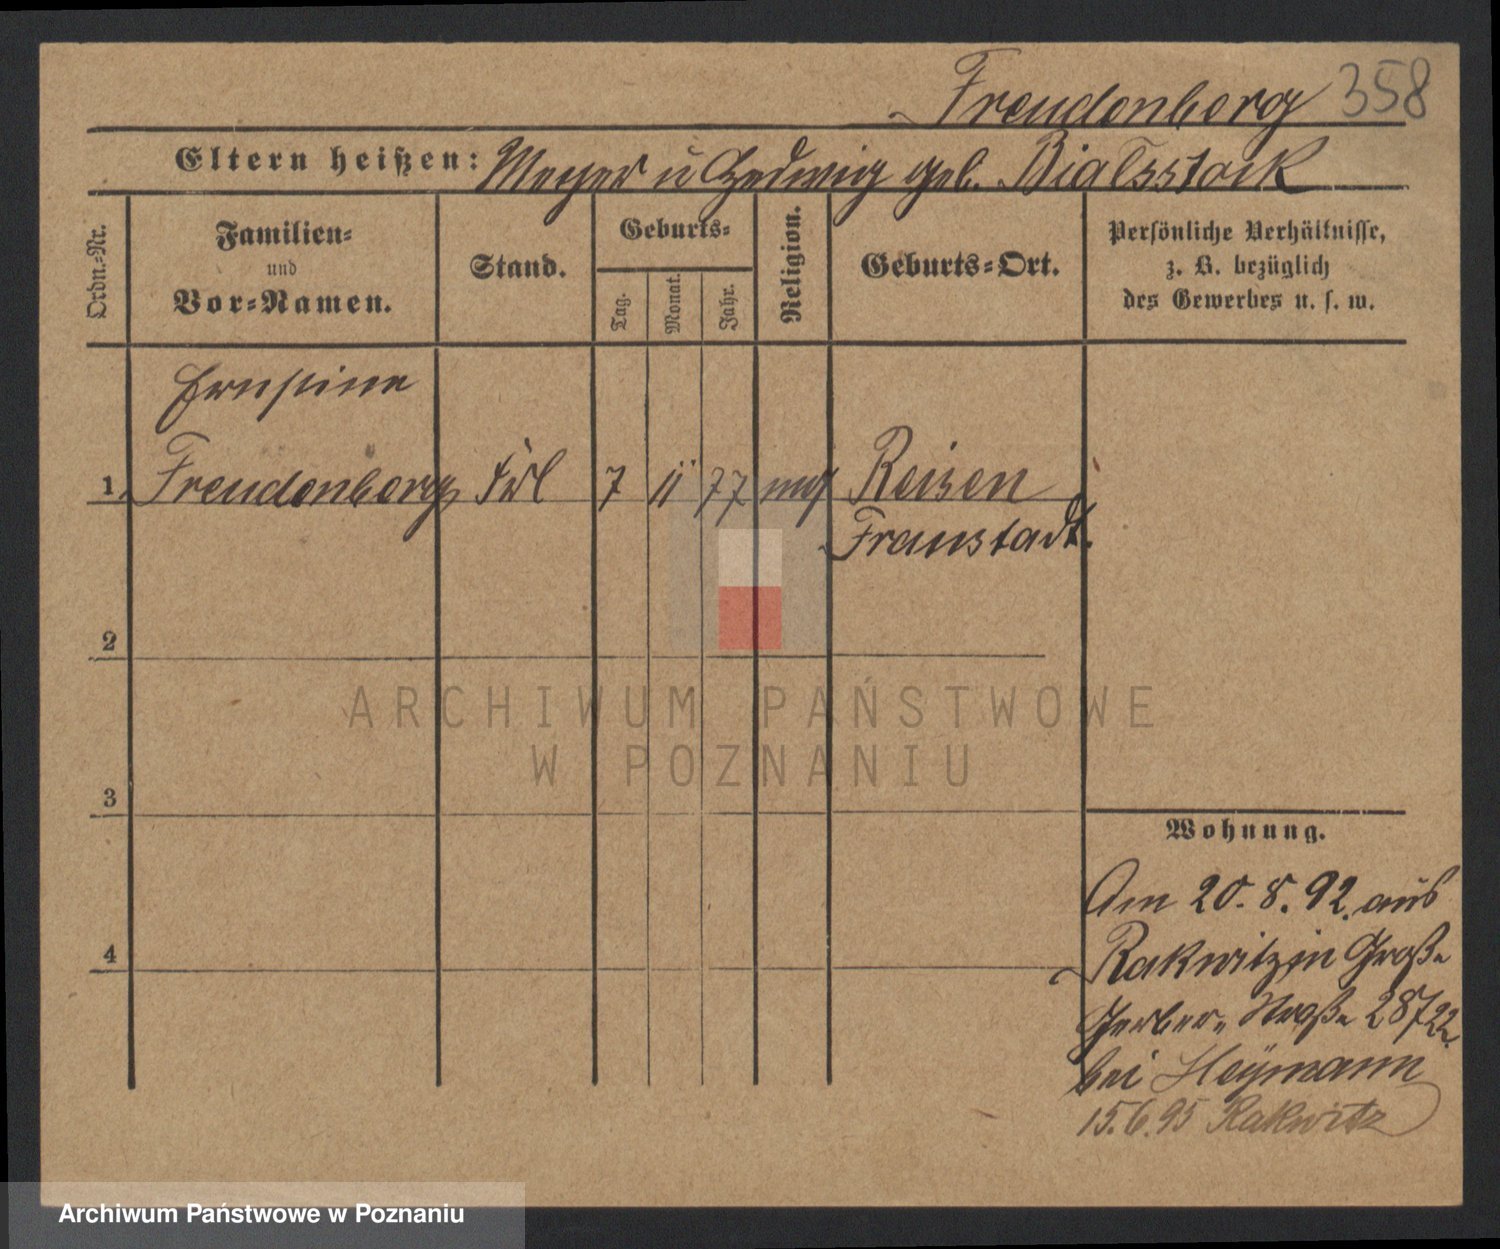 Freudenberg 358
Eltern heißen: Meyer u Hedwig geb. Bialsstock
Ordn.-Nr.
Familien-
und
Vor-Namen.
Stand.
Geburts-
Tag.
Monat.
Jahr.
Religion.
Geburts-Ort.
Persönliche Verhältnisse,
z. B. bezüglich
des Gewerbes u. s. w.
Ernstine
1 Freudenberg Frl 7 11 77 mos Reisen
Fraustadt.
2
3
4
Wohnung.
Am 20. 8. 92. aus
Rakwitz in Große
Gerber-Straße 28/22.
bei Heymann
15.6.95 Rakwitz
ARCHIWUM PAŃSTWOWE
W POZNANIU
Archiwum Państwowe w Poznaniu